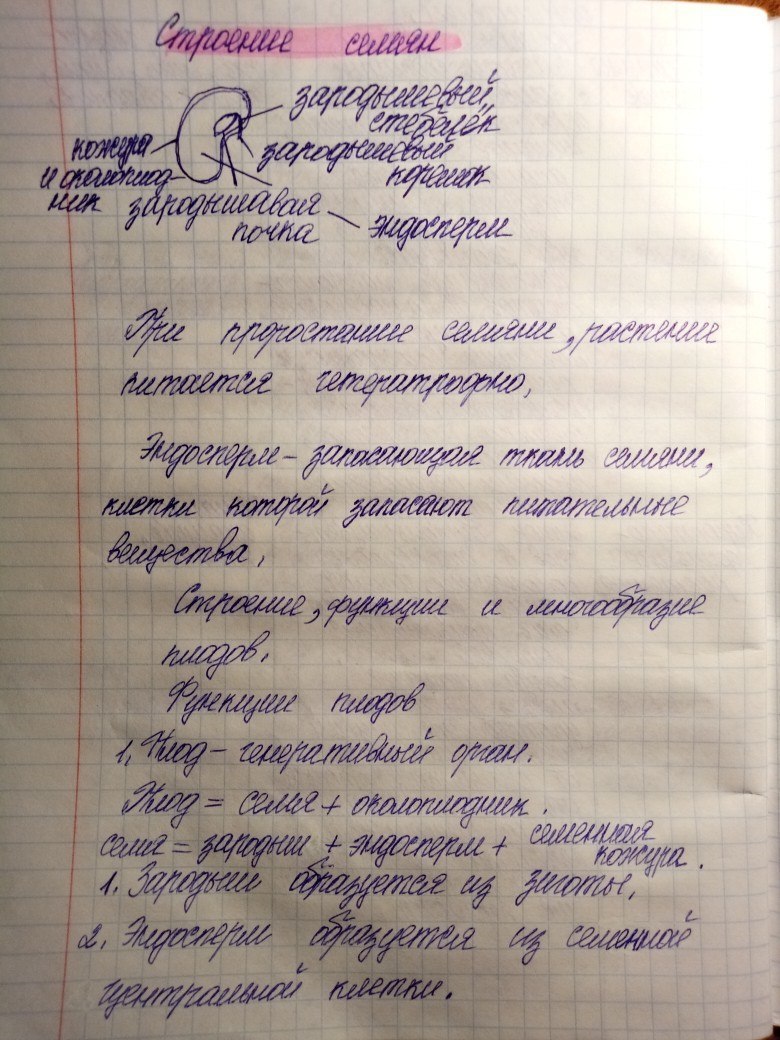 Строение семян
зародышевый
стебелёк
кожура
и околоплод-
ник
зародышевый
корешок
зародышавая
почка
эндосперм
При проростание семяни, растение
питается гетератрофно,
Эндосперм - запасающая ткань семяни,
клетки которой запасают питательные
вещества,
Строение, функции и многообразие
плодов.
Функции плодов
1. Плод - генеративный орган.
Плод = семя + околоплодник.
семя = зародыш + эндосперм + семенная
кожура.
1. Зародыш образуется из зиготы,
2. Эндосперм образуется из семенной
центральной клетки.